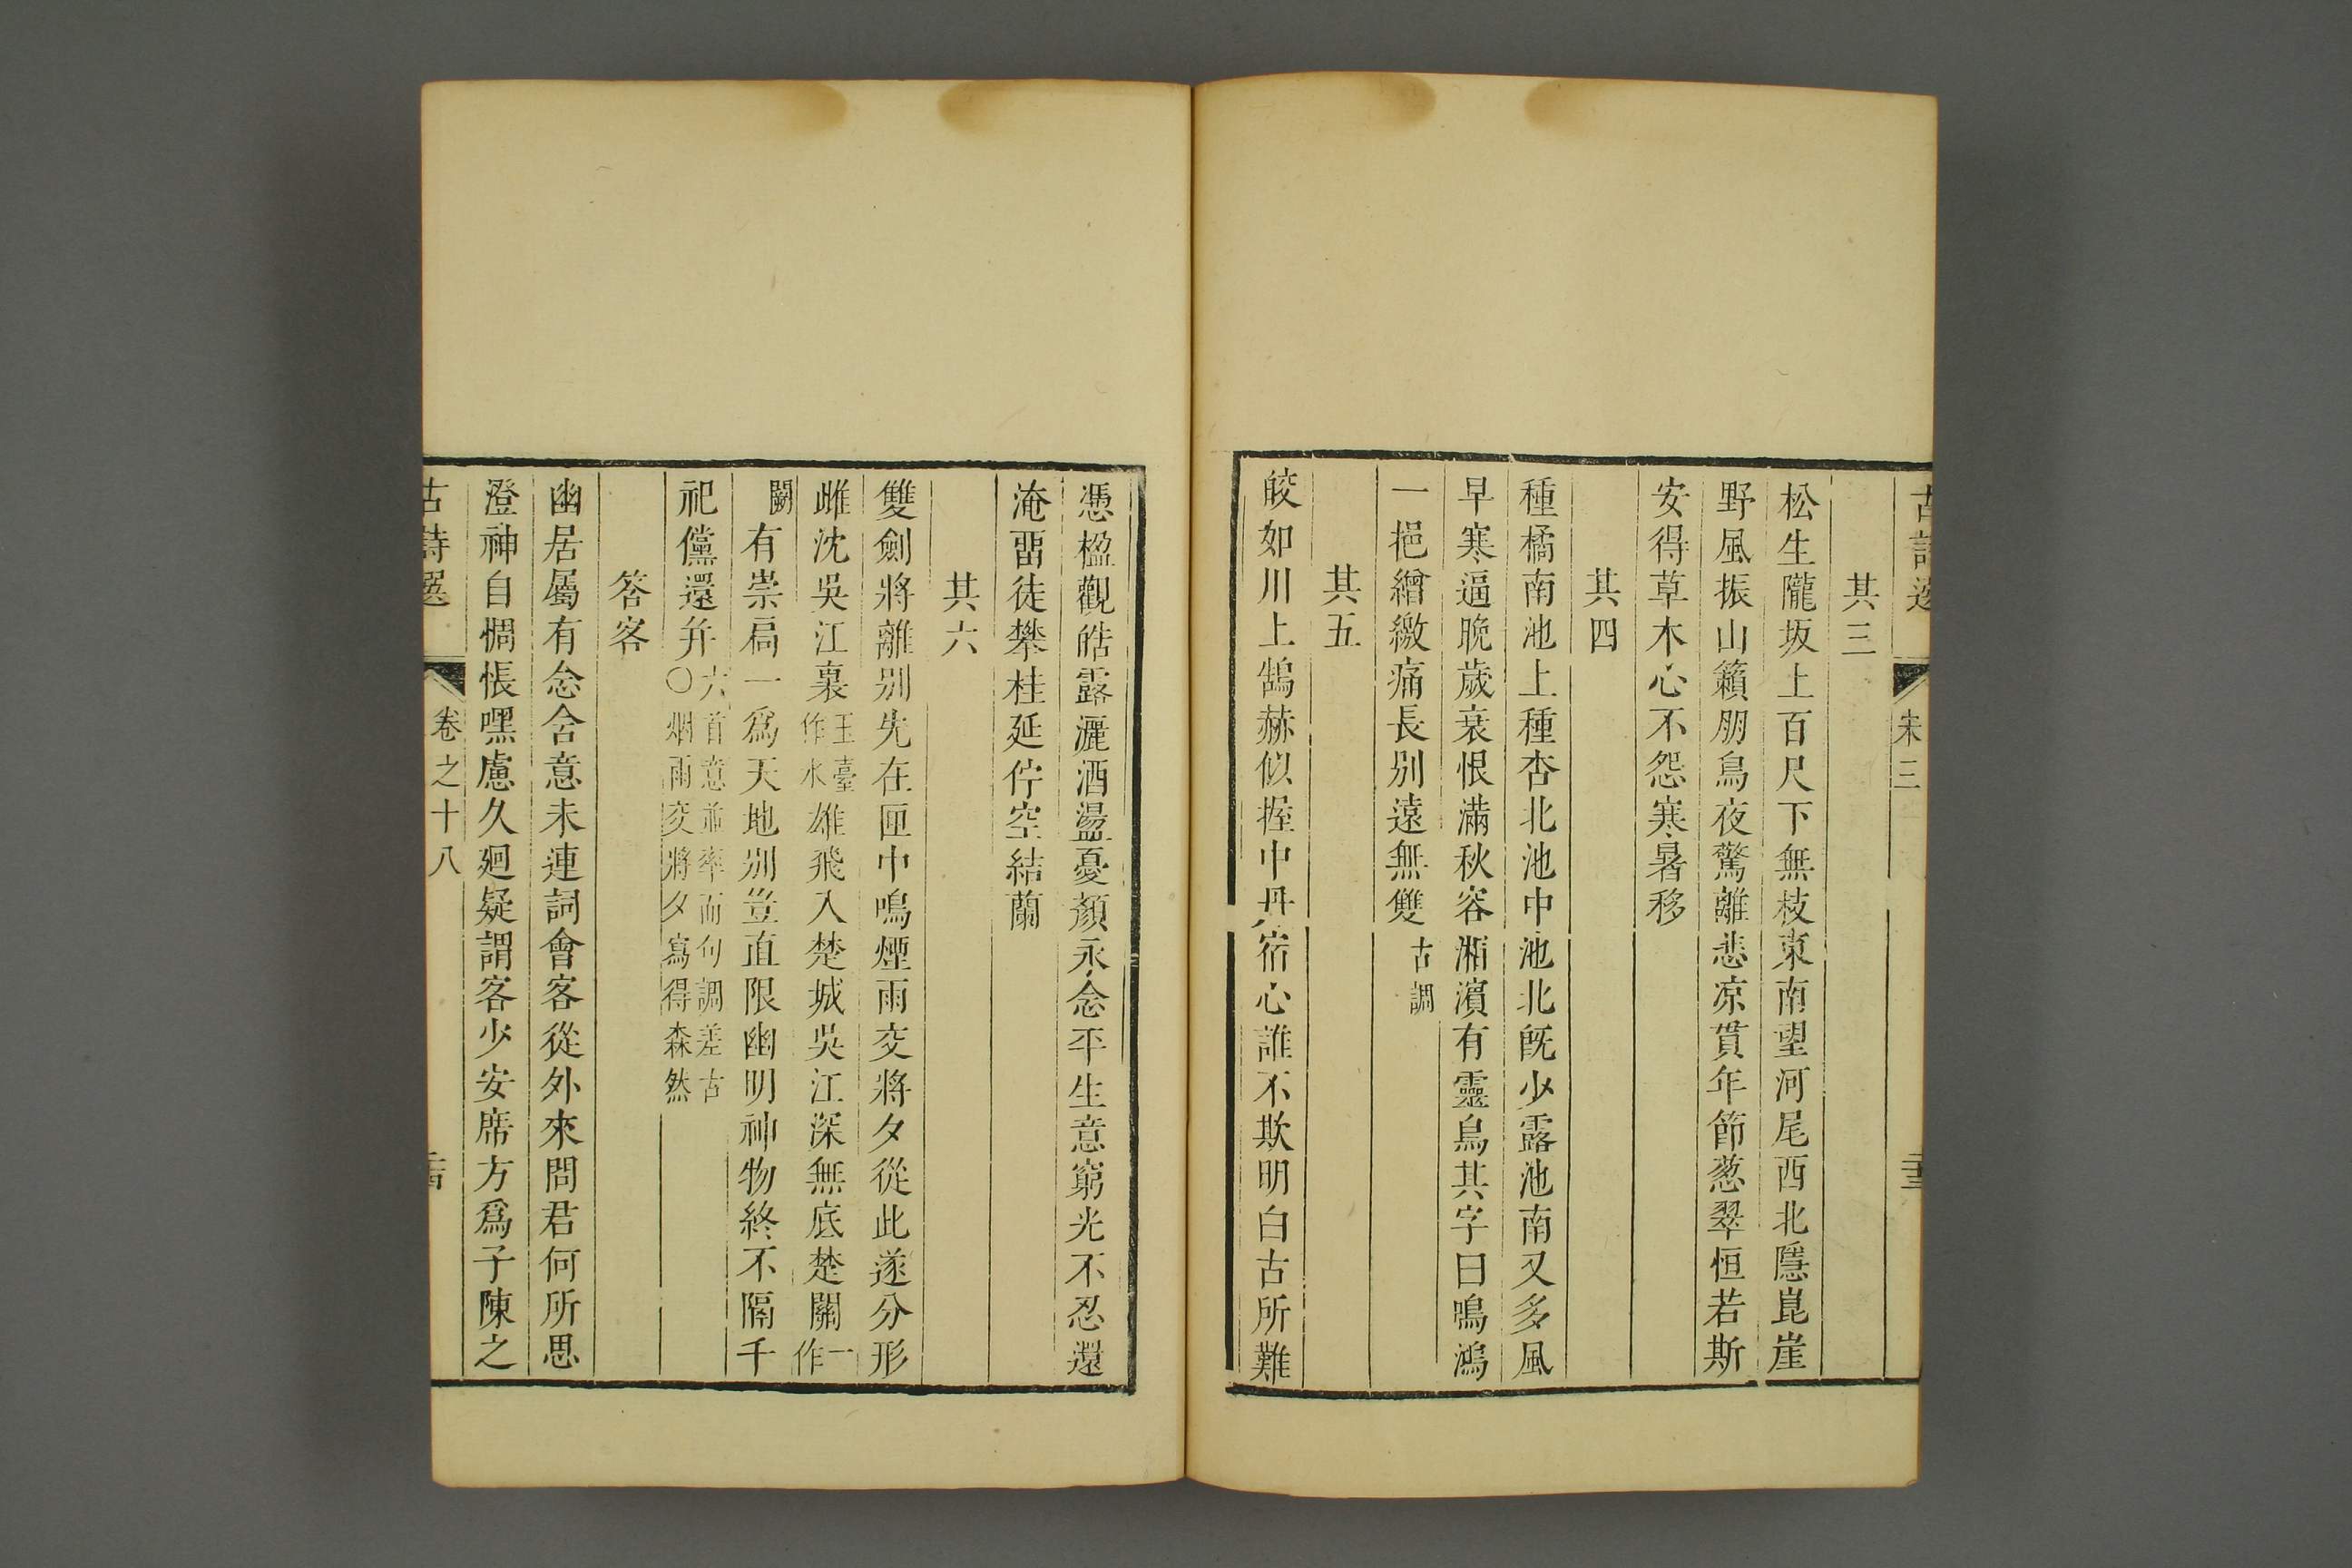 古詩選 宋三 二十三
其三
松生隴坂上百尺下無枝東南望河尾西北隱崑崖
野風振山籟朋鳥夜驚離悲凉貫年節葱翠恒若斯
安得草木心不怨寒暑移
其四
種橘南池上種杏北池中池北旣少露池南又多風
早寒逼晚歲衰恨滿秋容湘濱有靈鳥其字曰鳴鴻
一挹繒繳痛長別遠無雙 古調
其五
皎如川上鵠赫似握中丹宿心誰不欺明白古所難
憑楹觀皓露灑酒盪憂顏永念平生意窮光不忍還
淹畱徒攀桂延佇空結蘭
其六
雙劍將離別先在匣中鳴煙雨交將夕從此遂分形
雌沈吳江裏 玉臺作水 雄飛入楚城吳江深無底楚關 一作
闕 有崇扃一爲天地別豈直限幽明神物終不隔千
祀儻還并 六首意並率而句調差古○烟雨交將夕寫得森然
答客
幽居屬有念含意未連詞會客從外來問君何所思
澄神自惆悵嘿慮久廻疑謂客少安席方爲子陳之
古詩選 卷之十八 二十四